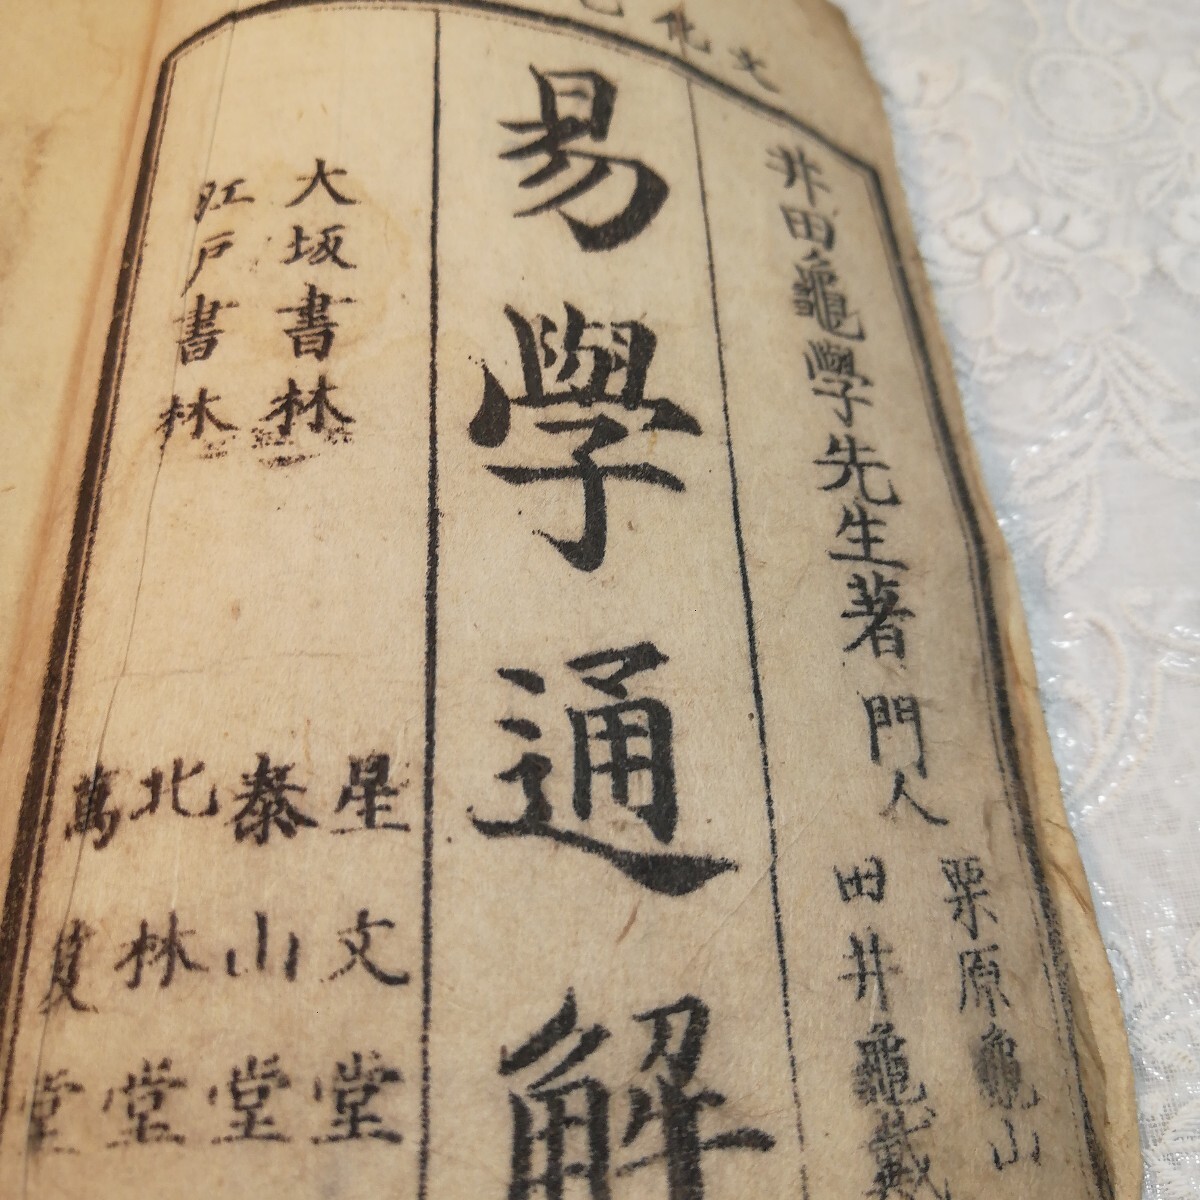 文化
井田龜學先生著 門人
栗原龜山
田井龜戴
易學通解
大坂書林
江戸書林
星文堂
泰山堂
北林堂
萬笈堂